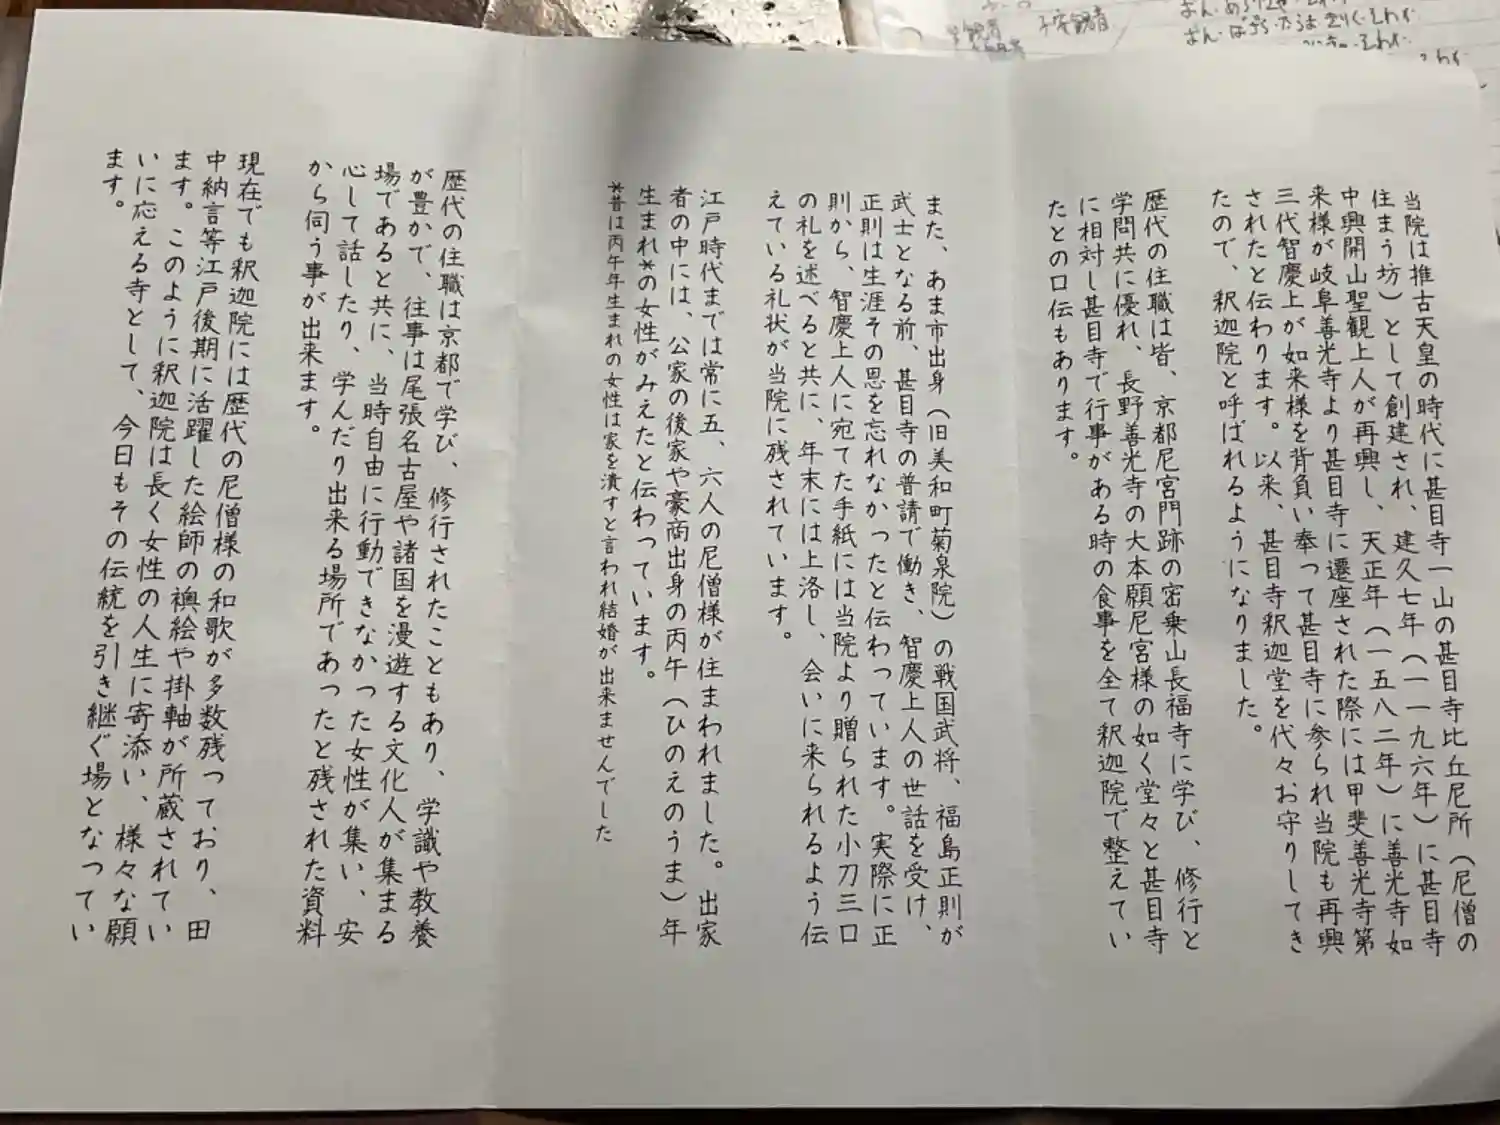 当院は推古天皇の時代に甚目寺一山の甚目寺比丘尼所（尼僧の
住まう坊）として創建され、建久七年（一一九六年）に甚目寺
中興開山聖観上人が再興し、天正年（一五八二年）に善光寺如
来様が岐阜善光寺より甚目寺に遷座された際には甲斐善光寺第
三代智慶上が如来様を背負い奉って甚目寺に参られ当院も再興
されたと伝わります。以来、甚目寺釈迦堂を代々お守りしてき
たので、釈迦院と呼ばれるようになりました。
歴代の住職は皆、京都尼宮門跡の密乗山長福寺に学び、修行と
学問共に優れ、長野善光寺の大本願尼宮様の如く堂々と甚目寺
に相対し甚目寺で行事がある時の食事を全て釈迦院で整えてい
たとの口伝もあります。
また、あま市出身（旧美和町菊泉院）の戦国武将、福島正則が
武士となる前、甚目寺の普請で働き、智慶上人の世話を受け、
正則は生涯その恩を忘れなかったと伝わっています。実際に正
則から、智慶上人に宛てた手紙には当院より贈られた小刀三口
の礼を述べると共に、年末には上洛し、会いに来られるよう伝
えている礼状が当院に残されています。
江戸時代までは常に五、六人の尼僧様が住まわれました。出家
者の中には、公家の後家や豪商出身の丙午（ひのえのうま）年
生まれ*の女性がみえたと伝わっています。
*昔は丙午年生まれの女性は家を潰すと言われ結婚が出来ませんでした
歴代の住職は京都で学び、修行されたこともあり、学識や教養
が豊かで、往事は尾張名古屋や諸国を漫遊する文化人が集まる
場であると共に、当時自由に行動できなかった女性が集い、安
心して話したり、学んだり出来る場所であったと残された資料
から伺う事が出来ます。
現在でも釈迦院には歴代の尼僧様の和歌が多数残っており、田
中納言等江戸後期に活躍した絵師の襖絵や掛軸が所蔵されてい
ます。このように釈迦院は長く女性の人生に寄添い、様々な願
いに応える寺として、今日もその伝統を引き継ぐ場となってい
ます。
子安観音